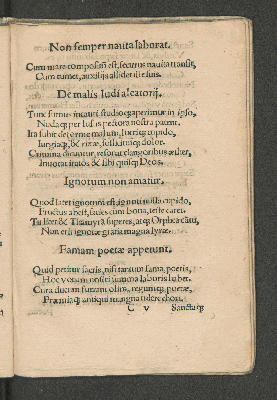 Non semper nauta laborat.
Cum mare compositū est, securus nauita transit,
Cum tumet, auxilijs assidet ille suis.
De malis ludi aleatorij.
Tunc sumus incauti studioq; aperimur in ipso,
Nudaq; per lusus pectora nostra patent.
Ira subit deforme malum, lucriq; cupido,
Iurgiaq;, & rixæ, sollicitusq; dolor.
Crimina dicuntur, resonat clamoribus æther,
Inuocat iratos & sibi quisq; Deos.
Ignotum non amatur.
Quod latet ignotum est, ignoti nulla cupido,
Fructus abest, facies cum bona, teste caret.
Tu licet & Thamyrā superes, atq; Orphea cātu,
Non erit ignotæ gratia magna lyræ.
Famam poetæ appetunt.
Quid petitur sacris, nisi tantum fama, poetis,
Hoc votum nostri summa laboris habet.
Cura ducum fuerant olim, regumq; poetæ,
Præmiaq; antiqui magna tulere chori.
C v Sanctaq;